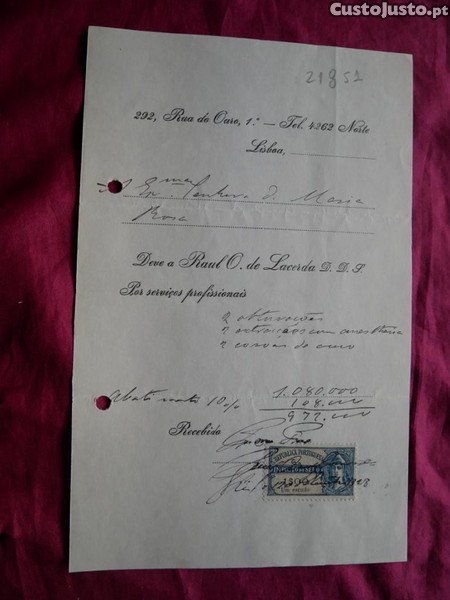 CustoJusto.pt
21852
292, Rua do Ouro, 1.º — Tel. 4262 Norte
Lisboa,
A Ex.ma Senhora D. Maria
Rosa
Deve a Raul O. de Lacerda D. D. S.
Por serviços profissionais
2 obturações
2 extracções com anesthesia
2 corôas de ouro
1.080.000
Abatimento 10% 108.000
972.000
Recebido
REPUBLICA PORTUGUESA